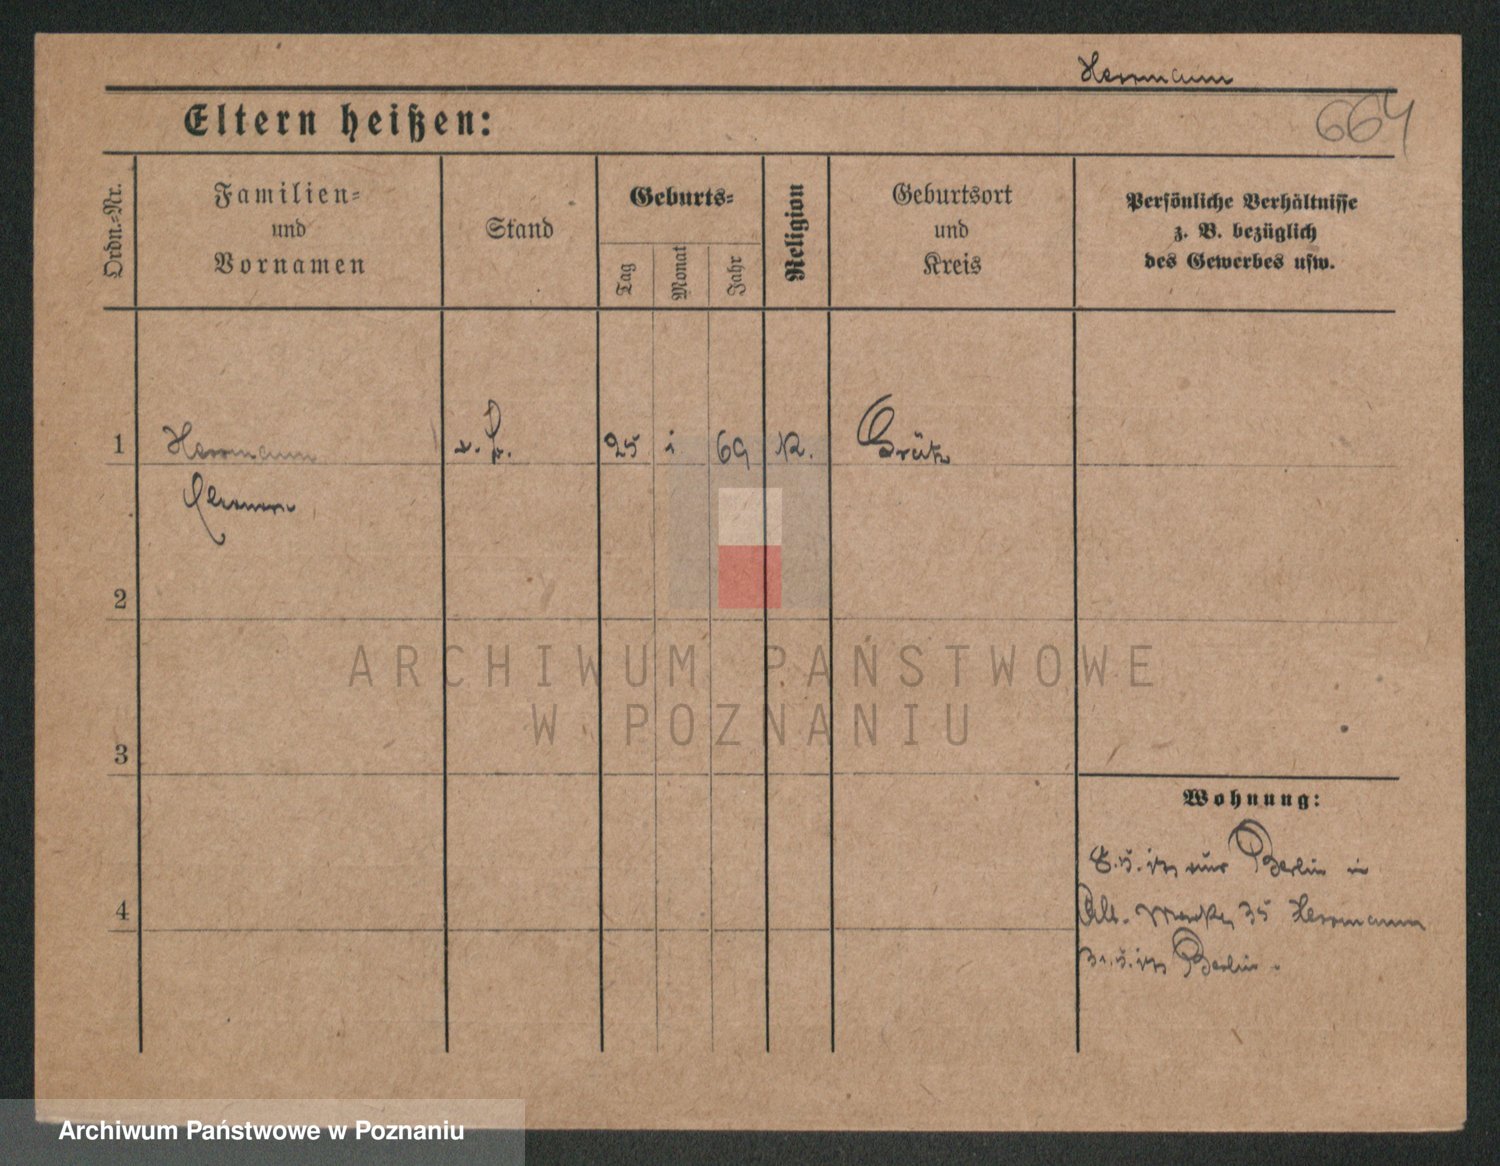 Herrmann
664
Eltern heißen:
Ordn.=Nr.
Familien=
und
Vornamen
Stand
Geburts=
Tag
Monat
Jahr
Religion
Geburtsort
und
Kreis
Persönliche Verhältnisse
z. B. bezüglich
des Gewerbes usw.
1
Herrmann
25
69
K.
Grätz
2
ARCHIWUM PAŃSTWOWE
W POZNANIU
3
Wohnung:
Berlin in
4
35 Herrmann
Berlin.
Archiwum Państwowe w Poznaniu